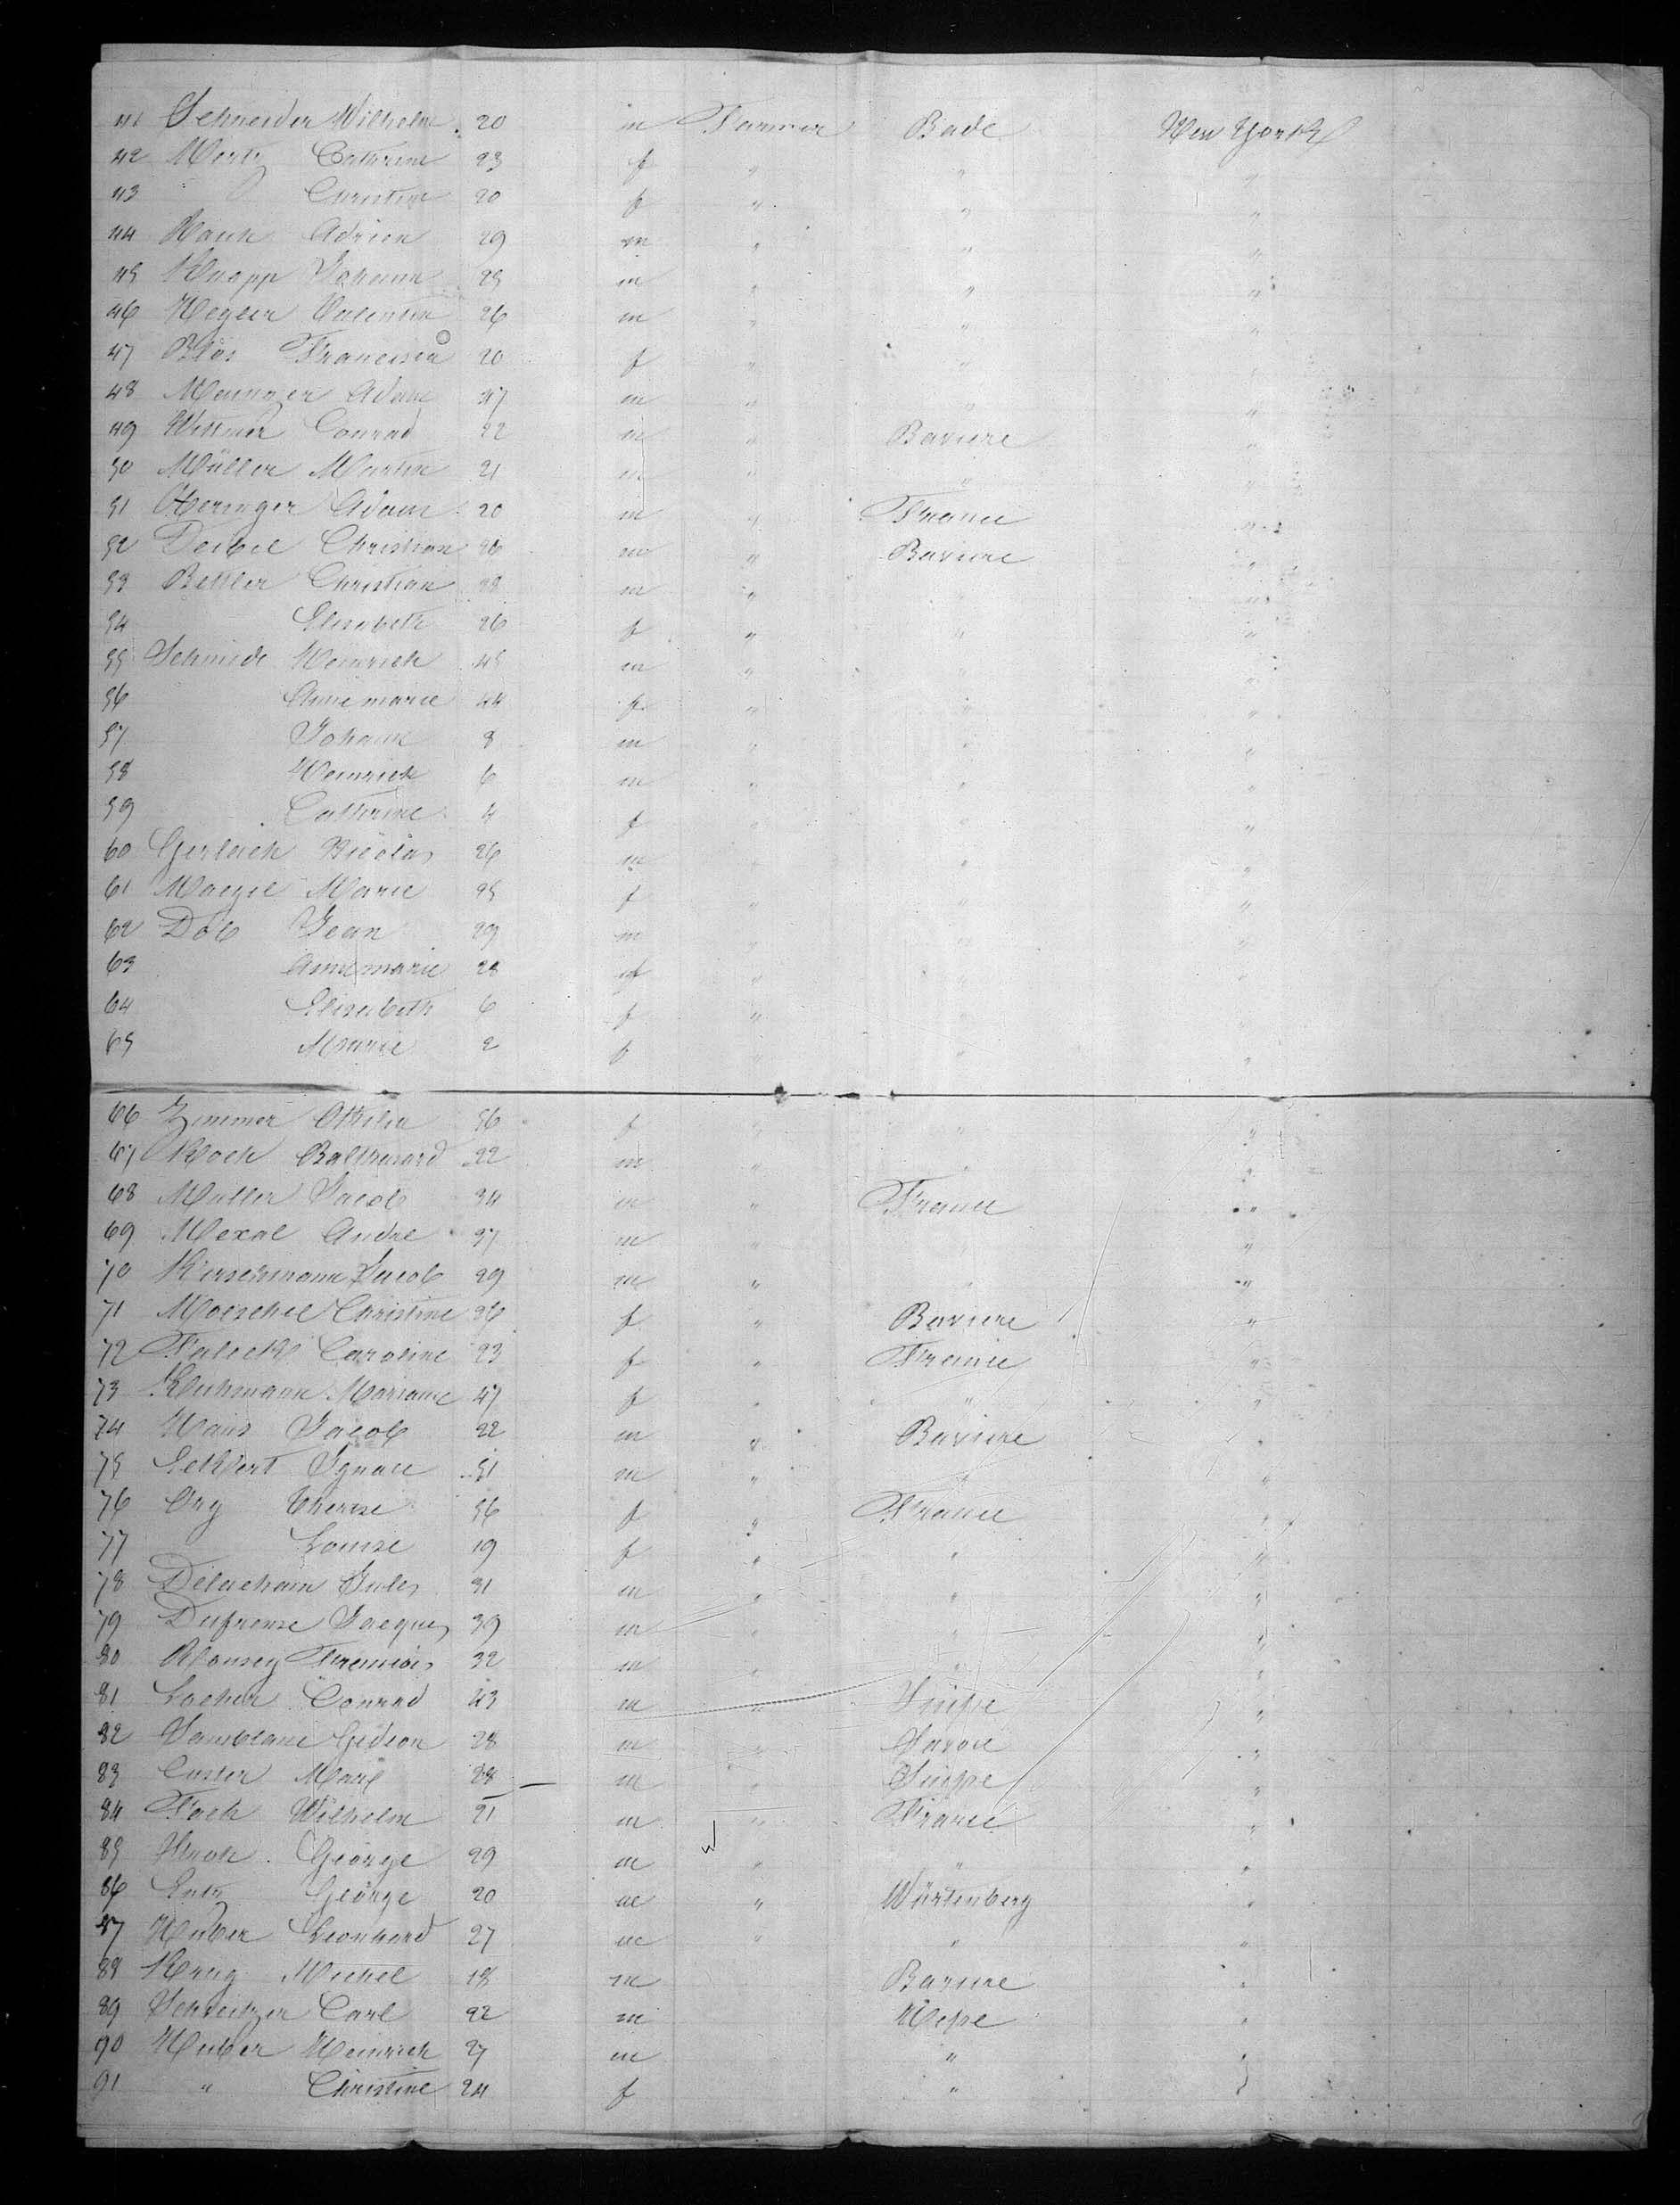 41 Schneider Wilhelm 20 m Farmer Bade New York
42 Mertz Cathrine 23 f " " "
43 " Christine 20 f " " "
44 Hauk Adrien 29 m " " "
45 Knapp Johann 25 m " " "
46 Valentin 26 m " " "
47 Blas Francisca 20 f " "
48 Adam 47 m " " "
49 Wittmer Conrad 22 m " Baviere "
50 Müller Martin 21 m " " "
51 Oberinger Adam 20 m " France "
52 Deibel Christian 26 m " Baviere "
53 Bettler Christian 28 m " " "
54 Elisabeth 26 f " " "
55 Schmidt Heinrich 45 m " " "
56 Annemarie 44 f " " "
57 Johann 8 m " " "
58 Heinrich 6 m " " "
59 Cathrine 4 f " " "
60 Gerlach Nicolas 26 m " " "
61 Marie 25 f " " "
62 Dob Jean 29 m " " "
63 Annemarie 28 f " " "
64 Elisabeth 6 f " " "
65 Marie 2 f " " "
66 Zimmer Ottilia 56 f " " "
67 Koch 22 m " " "
68 Muller Jacob 34 m " France "
69 Mexal Andre 37 m " "
70 Jacob 29 m " " "
71 Moeschel Christine 26 f " Baviere "
72 Faleck Caroline 23 f " France "
73 Kuhmann Mariane 47 f " " "
74 Hans Jacob 22 m " Baviere "
75 Ignace 51 m " " "
76 Ory Therese 56 f " France "
77 Louise 19 f " " "
78 Delacham Jules 31 m " " "
79 Dufresne Jacques 39 m " " "
80 Ronsey Francois 32 m " " "
81 Locher Conrad 43 m " Suisse "
82 Gedeon 28 m " Savoie "
83 Custer 28 m " Suisse "
84 Foch Wilhelm 21 m " France "
85 George 29 m " " "
86 Lutz George 20 m " Würtenberg "
87 Huber Leonhard 27 m " " "
88 Krug Michel 18 m Baviere "
89 Schreitzer Carl 22 m Hesse "
90 Huber Heinrich 27 m " "
91 " Christine 24 f " "